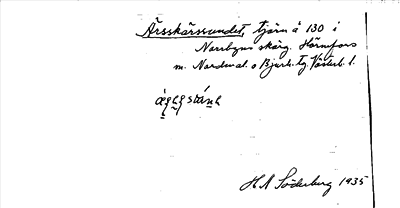 Ärsskärssundet, tjärn å 130 i
Norrbyns skärg. Hörnefors
m. Nordmal. o Bjurh. tg. Västerb. l.
H A Söderberg 1935